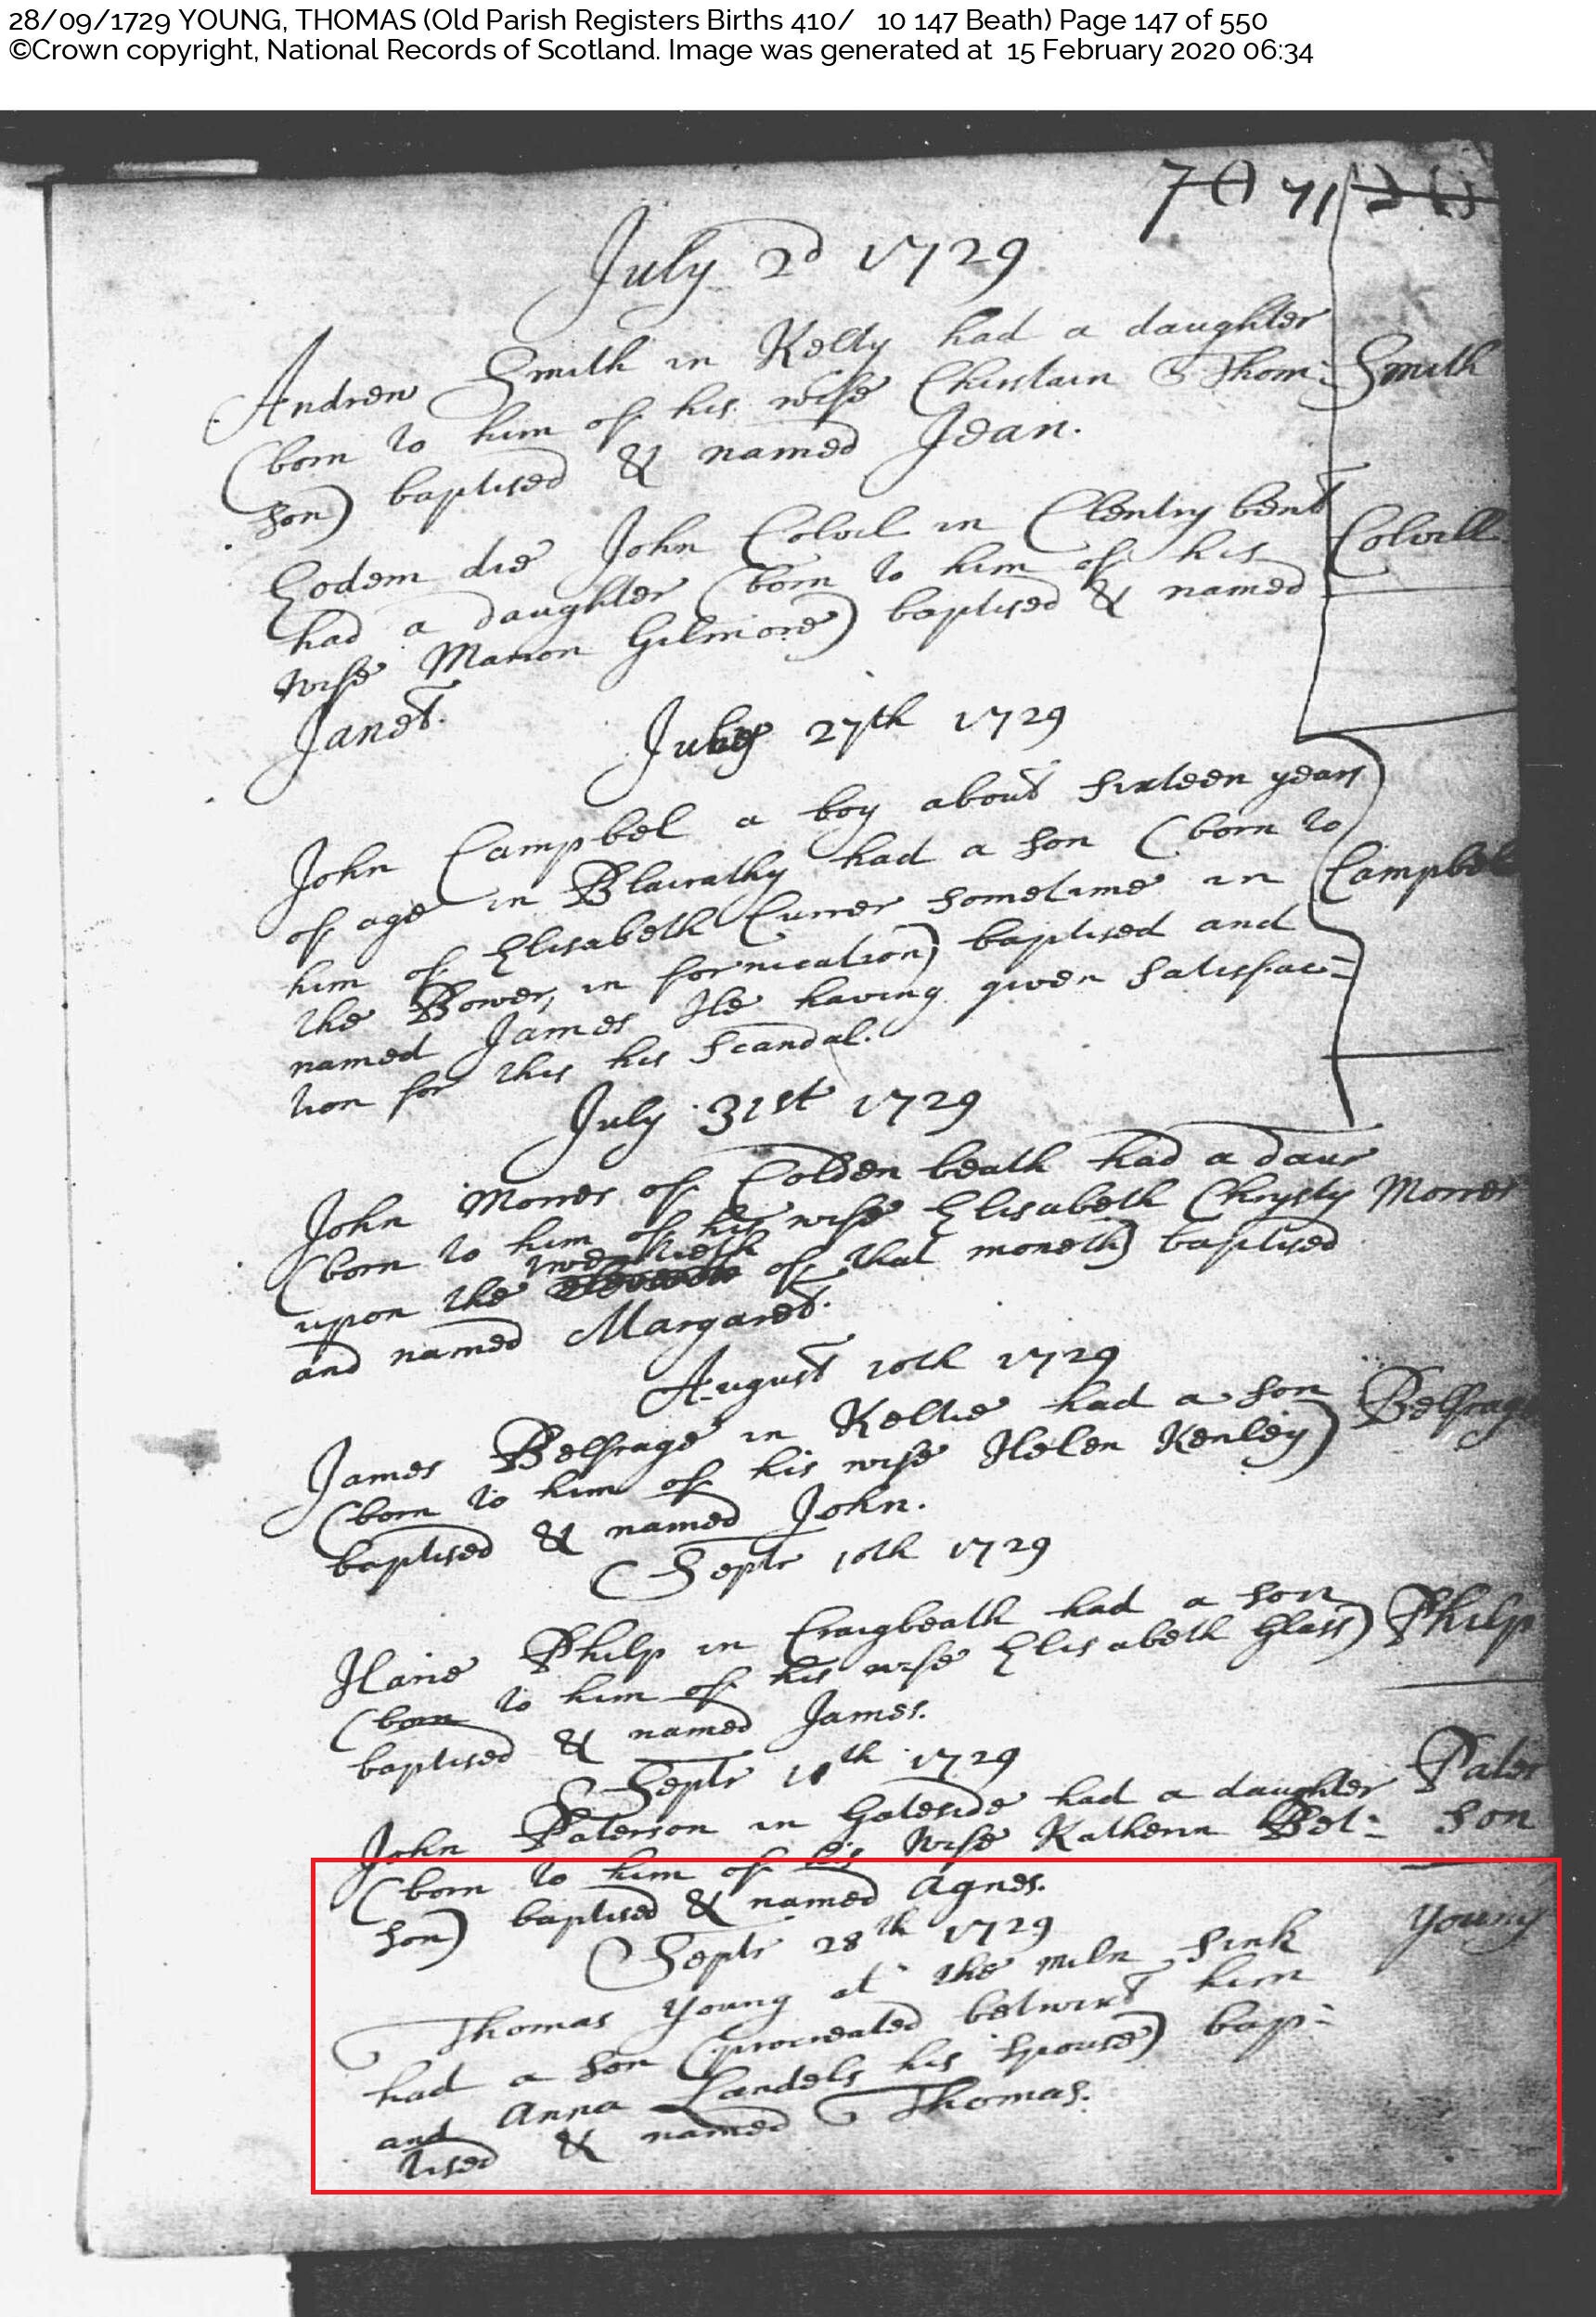 28/09/1729 YOUNG, THOMAS (Old Parish Registers Births 410/ 10 147 Beath) Page 147 of 550
©Crown copyright, National Records of Scotland. Image was generated at 15 February 2020 06:34
70 71
July 2d 1729
Andrew Smith in Kelty had a daughter
(born to him of his wife Christain Thom= Smith
son) baptised & named Jean.
Eodem die John Colvil in Clentry bent Colvill
had a daughter (born to him of his
wife Marion Gilmore) baptised & named
Janet.
July 27th 1729
John Campbel a boy about sixteen years
of age in Blairathy had a son (born to
him of Elisabeth Currer sometime in Campbel
the Bower, in fornication) baptised and
named James He having given satisfac=
tion for this his scandal.
July 31st 1729
John Morres of Colden beath had a daur
(born to him of his wife Elisabeth Chrysty Morres
upon the twentieth of that moneth) baptised
and named Margaret.
August 10th 1729
James Belfrage in Keltie had a son Belfrage
(born to him of his wife Helen Kenley)
baptised & named John.
Septr 10th 1729
Harie Philp in Craigbeath had a son
(born to him of his wife Elisabeth Glass) Philp
baptised & named James.
Septr 11th 1729
John Paterson in Gateside had a daughter Pater
(born to him of his wife Katherin Bet= son
son) baptised & named Agnes.
Septr 28th 1729
Thomas Young at the miln sink Young
had a son (procreated betwixt him
and Anna Landels his spouse) bap=
tised & named Thomas.